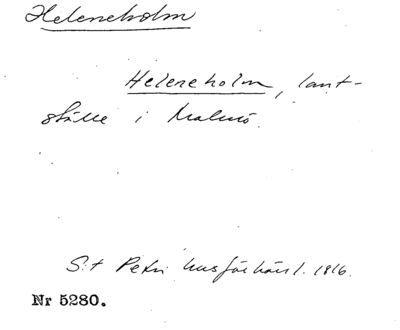 Heleneholm
Heleneholm, lant-
ställe i Malmö.
S:t Petri husförhörsl. 1816.
Nr 5280.